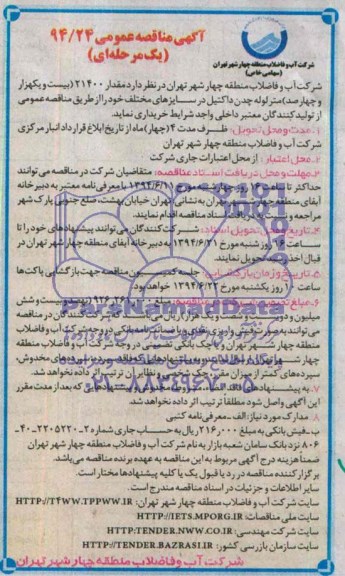 آگهی مناقصه عمومی ۹۴/۲۴
(یک مرحله‌ای)
شرکت آب و فاضلاب منطقه چهار شهر تهران
(سهامی خاص)
شرکت آب و فاضلاب منطقه چهار شهر تهران در نظر دارد مقدار ۲۱۴۰۰ (بیست و یکهزار
و چهارصد) متر لوله چدن داکتیل در سایزهای مختلف خود را از طریق مناقصه عمومی
از تولیدکنندگان معتبر داخلی واجد شرایط خریداری نماید.
۱. مدت و محل تحویل: ظرف مدت ۴ (چهار) ماه از تاریخ ابلاغ قرارداد انبار مرکزی
شرکت آب و فاضلاب منطقه چهار شهر تهران
۲. محل اعتبار: از محل اعتبارات جاری شرکت
۳. مهلت و محل دریافت اسناد مناقصه: متقاضیان شرکت در مناقصه می‌توانند
حداکثر تا ساعت روز چهارشنبه مورخ ۱۳۹۴/۶/۱۱ با معرفی‌نامه معتبر به دبیرخانه
آبفای منطقه چهار شهر تهران به نشانی تهران خیابان بهشت، ضلع جنوبی پارک شهر
مراجعه و نسبت به دریافت اسناد مناقصه اقدام نمایند.
۴. تاریخ و محل تحویل اسناد: شرکت‌کنندگان می‌توانند پیشنهادهای خود را تا
ساعت ۱۶ روز شنبه مورخ ۱۳۹۴/۶/۲۱ به دبیرخانه آبفای منطقه چهار شهر تهران در
قبال اخذ رسید تحویل نمایند.
۵. تاریخ و زمان بازگشایی: جلسه کمیسیون مناقصه جهت بازگشایی پاکت‌ها
ساعت ۱۰ روز یکشنبه مورخ ۱۳۹۴/۶/۲۲ خواهد بود.
۶. مبلغ تضمین
میلیون و یکهزار ریال می‌باشد که شرکت‌کنندگان در مناقصه
می‌توانند به صورت فیش واریزی نقدی و یا ضمانت‌نامه بانکی در وجه شرکت آب و فاضلاب
منطقه چهار شهر تهران و یا چک بانکی تضمینی در وجه شرکت آب و فاضلاب منطقه
سپرده‌های کمتر از میزان مقرر، چک شخصی و نظایر آن ترتیب اثر داده نخواهد شد.
۷. به پیشنهادهای که بعد از مدت مقرر
این آگهی واصل شود مطلقاً ترتیب اثر داده نخواهد شد.
۸. مدارک مورد نیاز: الف-معرفی‌نامه کتبی
ب-فیش بانکی به مبلغ ۲۱۶٬۰۰۰ ریال به حساب جاری شماره ۲-۲۲۰۵۲۲۰-۴۰-
۸۰۶ نزد بانک سامان شعبه بازار به نام شرکت آب و فاضلاب منطقه چهار شهر تهران
ضمناً هزینه درج آگهی مربوط به این مناقصه به عهده برنده مناقصه می‌باشد.
برگزارکننده مناقصه در رد یا قبول یک یا کلیه پیشنهادها مختار است.
سایر اطلاعات و جزئیات در اسناد مناقصه مندرج است.
سایت شرکت آب و فاضلاب منطقه چهار شهر تهران: HTTP://T4WW.TPPWW.IR
سایت ملی مناقصات: HTTP://IETS.MPORG.IR
سایت شرکت مهندسی: HTTP:TENDER.NWW.CO.IR
سایت سازمان بازرسی کشور: HTTP://TENDER.BAZRASI.IR
شرکت آب و فاضلاب منطقه چهار شهر تهران
ParsNamadData
۰۲۱-۸۸۳۴۹۶۷۰-۵